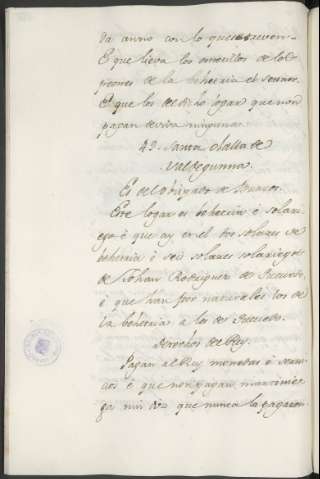 da anno con lo que
E que lieva los omecillos de los
peones de la behetria el Sennor.
E que los del dicho logar que non
pagan devisa ninguna.
49. Santa olalla de
Valdegunna.
Es del Obispado de Burgos.
Este logar es behetria é solari-
ego é que ay en el dos solares de
behetria é seis solares solariegos
de Johan Rodriguez de
é que han por naturales los de
la behetria a los de
Derechos del Rey.
Pagan al Rey monedas é servi-
cios é que non pagan martinie-
ga nin que nunca la pagaron